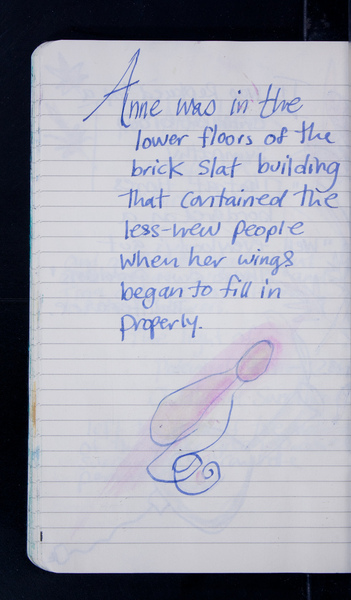 Anne was in the
lower floors of the
brick slat building
that contained the
less-new people
when her wings
began to fill in
properly.